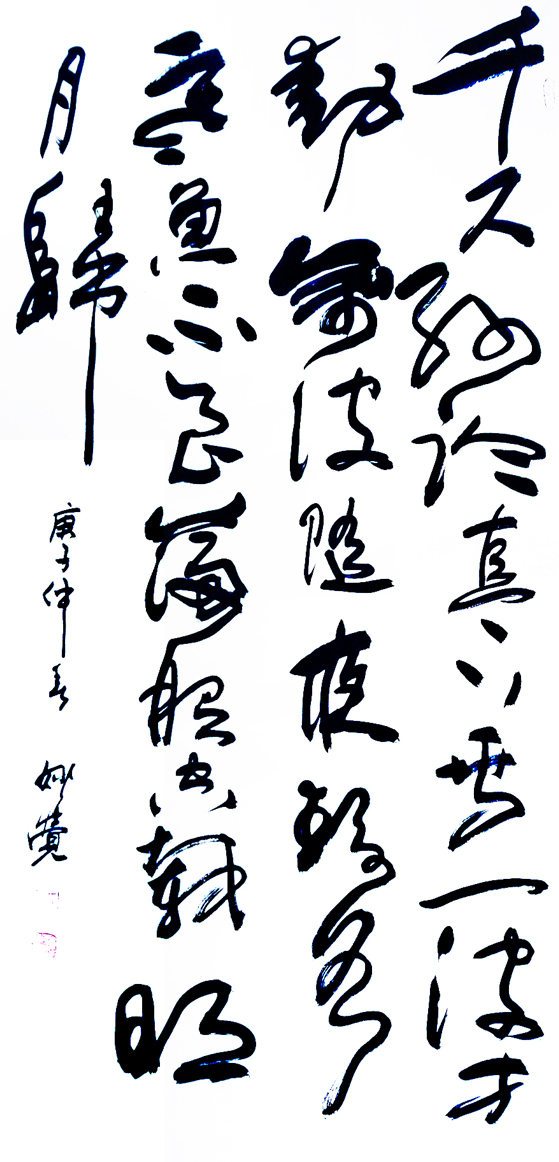 千尺絲綸直下垂一波才
動萬波隨夜靜水
寒魚不食滿船空載明
月歸
庚子仲春 妙